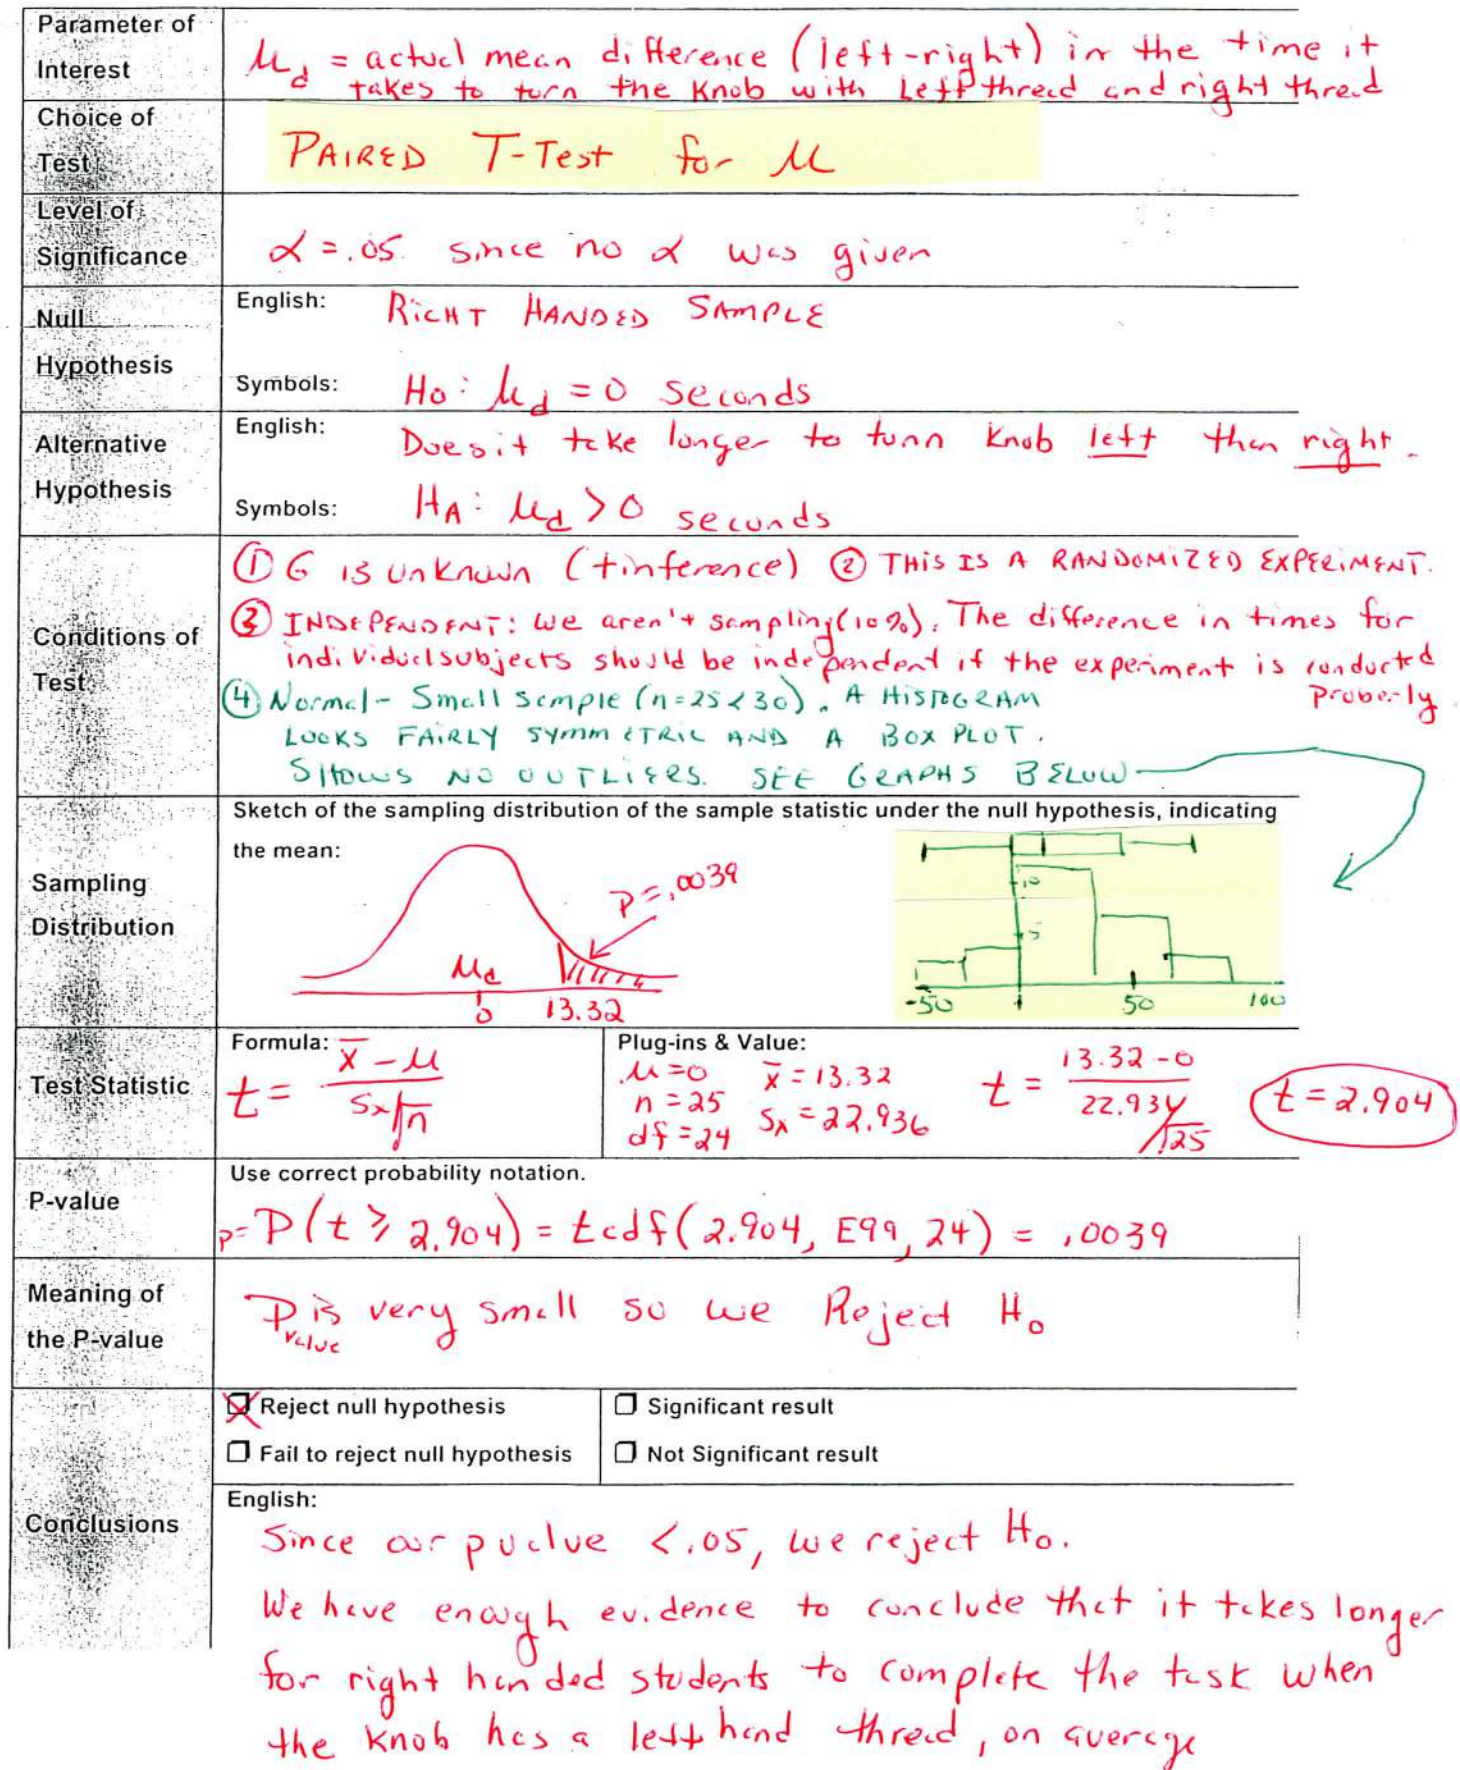 Parameter of Interest
μd = actual mean difference (left-right) in the time it
takes to turn the knob with Left thread and right thread
Choice of Test
PAIRED T-Test for μ
Level of Significance
α = .05 since no α was given
Null Hypothesis
English: RIGHT HANDED SAMPLE
Symbols: Ho: μd = 0 seconds
Alternative Hypothesis
English: Does it take longer to turn knob left than right.
Symbols: HA: μd > 0 seconds
Conditions of Test
① σ is unknown (t inference) ② THIS IS A RANDOMIZED EXPERIMENT.
③ INDEPENDENT: we aren't sampling (10%). The difference in times for
individual subjects should be independent if the experiment is conducted
properly
④ Normal - Small sample (n=25<30). A HISTOGRAM
LOOKS FAIRLY SYMMETRIC AND A BOX PLOT.
SHOWS NO OUTLIERS. SEE GRAPHS BELOW
Sampling Distribution
Sketch of the sampling distribution of the sample statistic under the null hypothesis, indicating
the mean:
P=.0039
μd
0 13.32
10
5
-50 50 100
Test Statistic
Formula: t = x̄ - μ / Sx/√n
Plug-ins & Value:
μ=0 x̄ = 13.32
n = 25 Sx = 22.936
df = 24
t = 13.32 - 0 / 22.936/√25
t = 2.904
P-value
Use correct probability notation.
p= P(t ≥ 2.904) = tcdf(2.904, E99, 24) = .0039
Meaning of the P-value
P value is very small so we Reject Ho
Conclusions
Reject null hypothesis
Fail to reject null hypothesis
Significant result
Not Significant result
English:
Since our pvalue < .05, we reject Ho.
We have enough evidence to conclude that it takes longer
for right handed students to complete the task when
the knob has a left hand thread, on average